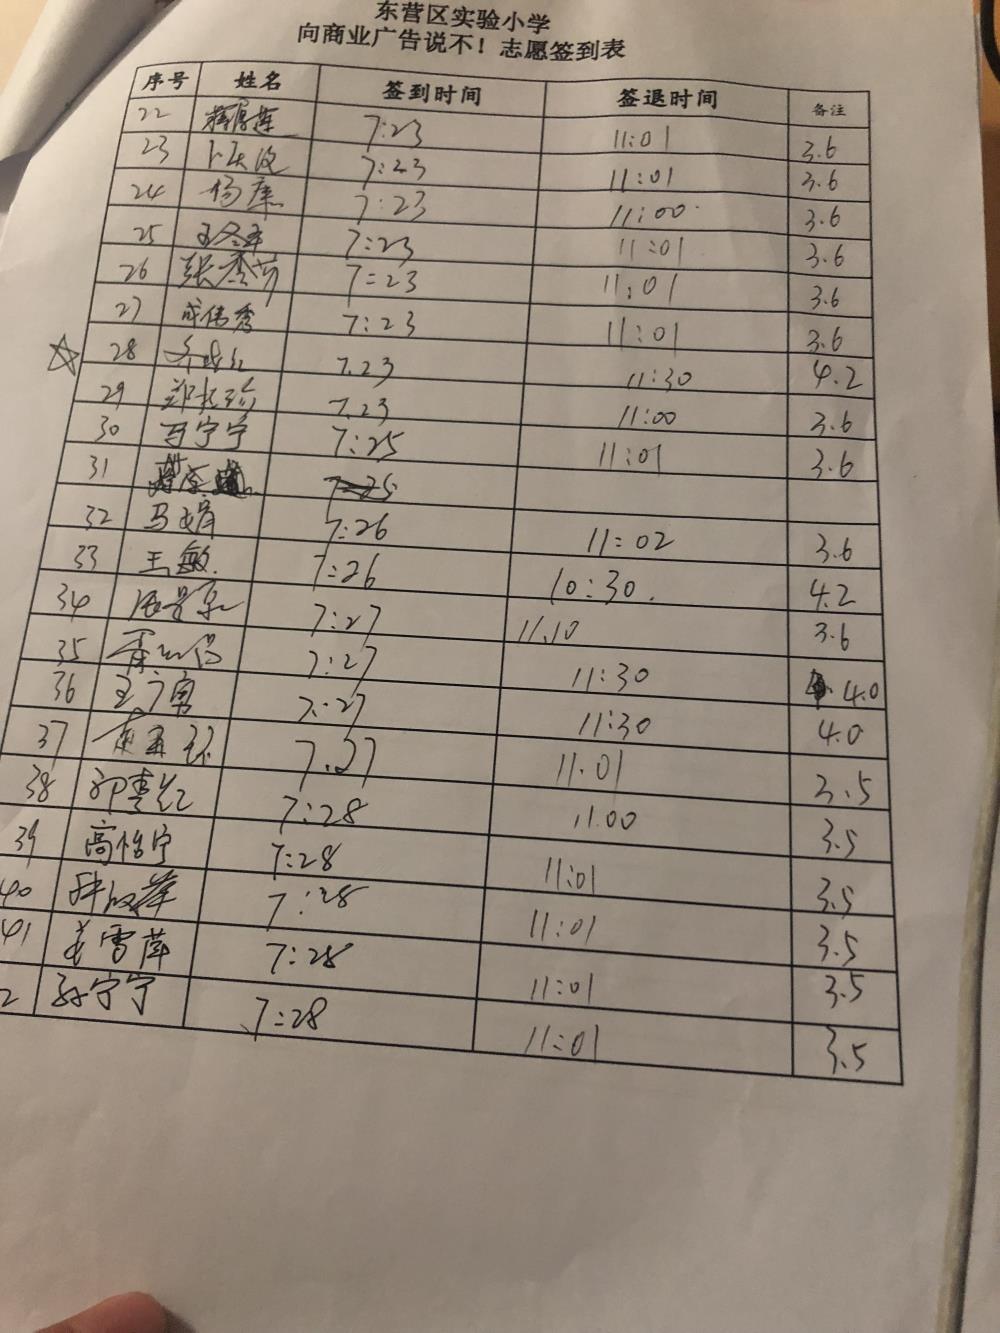 东营区实验小学
向商业广告说不！志愿签到表
序号 姓名 签到时间 签退时间 备注
22 7:23 11:01 3.6
23 7:23 11:01 3.6
24 杨康 7:23 11:00 3.6
25 王冬平 7:23 11:01 3.6
26 张秀芳 7:23 11:01 3.6
27 成伟秀 7:23 11:01 3.6
28 7.23 11:30 4.2
29 郑 7.23 11:00 3.6
30 马宁宁 7:25 11:01 3.6
31 7:25
32 马娟 7:26 11:02 3.6
33 王敏 7:26 10:30. 4.2
34 7:27 11.10 3.6
35 7:27 11:30 4.0
36 王广勇 7:27 11:30 4.0
37 7.27 11.01 3.5
38 7:28 11.00 3.5
39 高怡宁 7:28 11:01 3.5
40 7:28 11:01 3.5
41 姜雪萍 7:28 11:01 3.5
2 孙宁宁 7:28 11:01 3.5